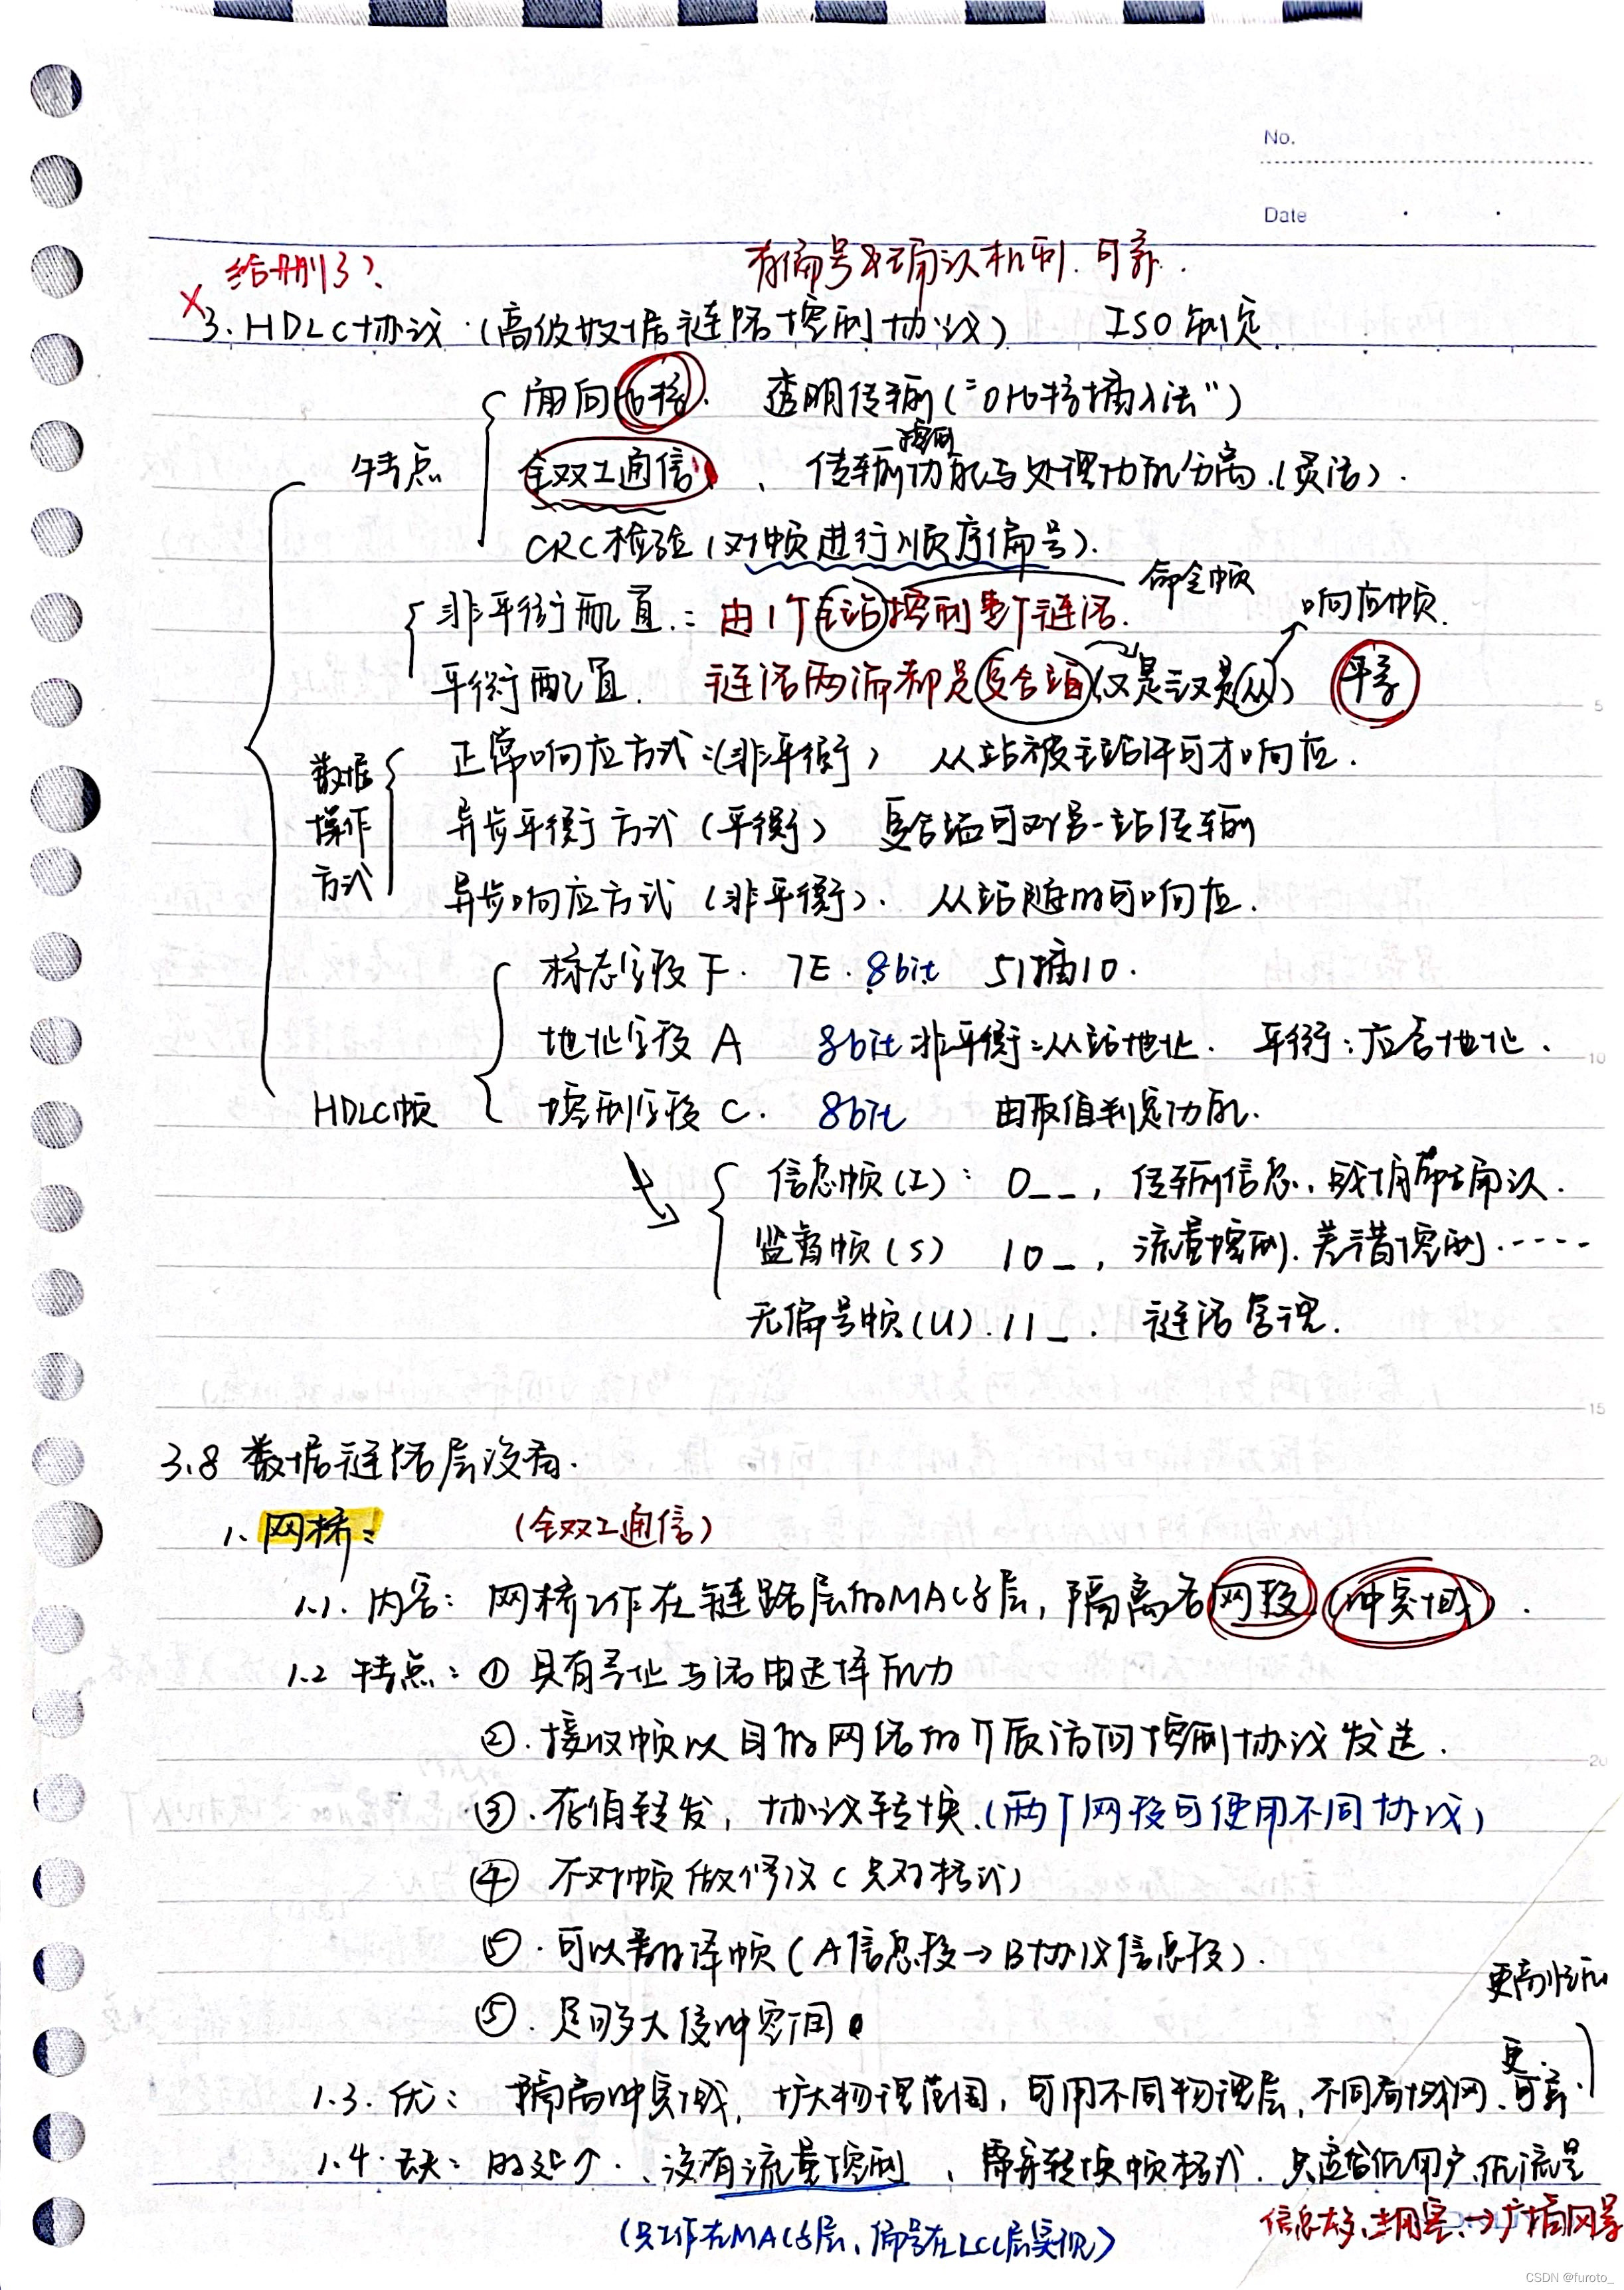 No.
Date
给删了? 有编号及确认机制.可靠.
×3.HDLC协议.(高级数据链路控制协议) ISO制定
面向比特. 透明传输("0比特插入法")
特点 全双工通信、传输控制功能与处理功能分离.(灵活).
CRC检验(对帧进行顺序编号).
命令帧
非平衡配置.:由1个主站控制整个链路. 响应帧.
平衡配置. 链路两端都是复合站(仅是主又是从) 平等
正常响应方式:(非平衡) 从站被主站许可才响应.
数据操作方式 异步平衡方式(平衡) 复合站可对另一站传输
异步响应方式(非平衡). 从站随时可响应.
标志字段F. 7E.8bit 5 1插1 0.
地址字段A 8bit 非平衡:从站地址. 平衡:应答地址.
HDLC帧 控制字段C. 8bit 由取值判定功能.
信息帧(I): 0__,传输信息,或捎带确认.
监督帧(S) 10_,流量控制.差错控制.----
无编号帧(U).11_. 链路管理.
3.8 数据链路层设备.
1.网桥: (全双工通信)
1.1.内容: 网桥工作在链路层的MAC子层,隔离各网段(冲突域).
1.2 特点:① 具有寻址与路由选择能力
②.接收帧以目的网络的介质访问控制协议发送.
③.存储转发,协议转换.(两个网段可使用不同协议)
④ 不对帧做修改(只对格式)
⑤.可以翻译帧(A信息段→B协议信息段).
⑤.足够大缓冲空间
更高性能
1.3.优: 隔离冲突域,扩大物理范围,可用不同物理层,不同局域网、更可靠.
1.4.缺:时延个、没有流量控制、需要转换帧格式.只适合低用户、低流量
(只工作在MAC子层、编号在LLC层实现) 信息太多、主阻塞、→广播风暴
CSDN @furoto_